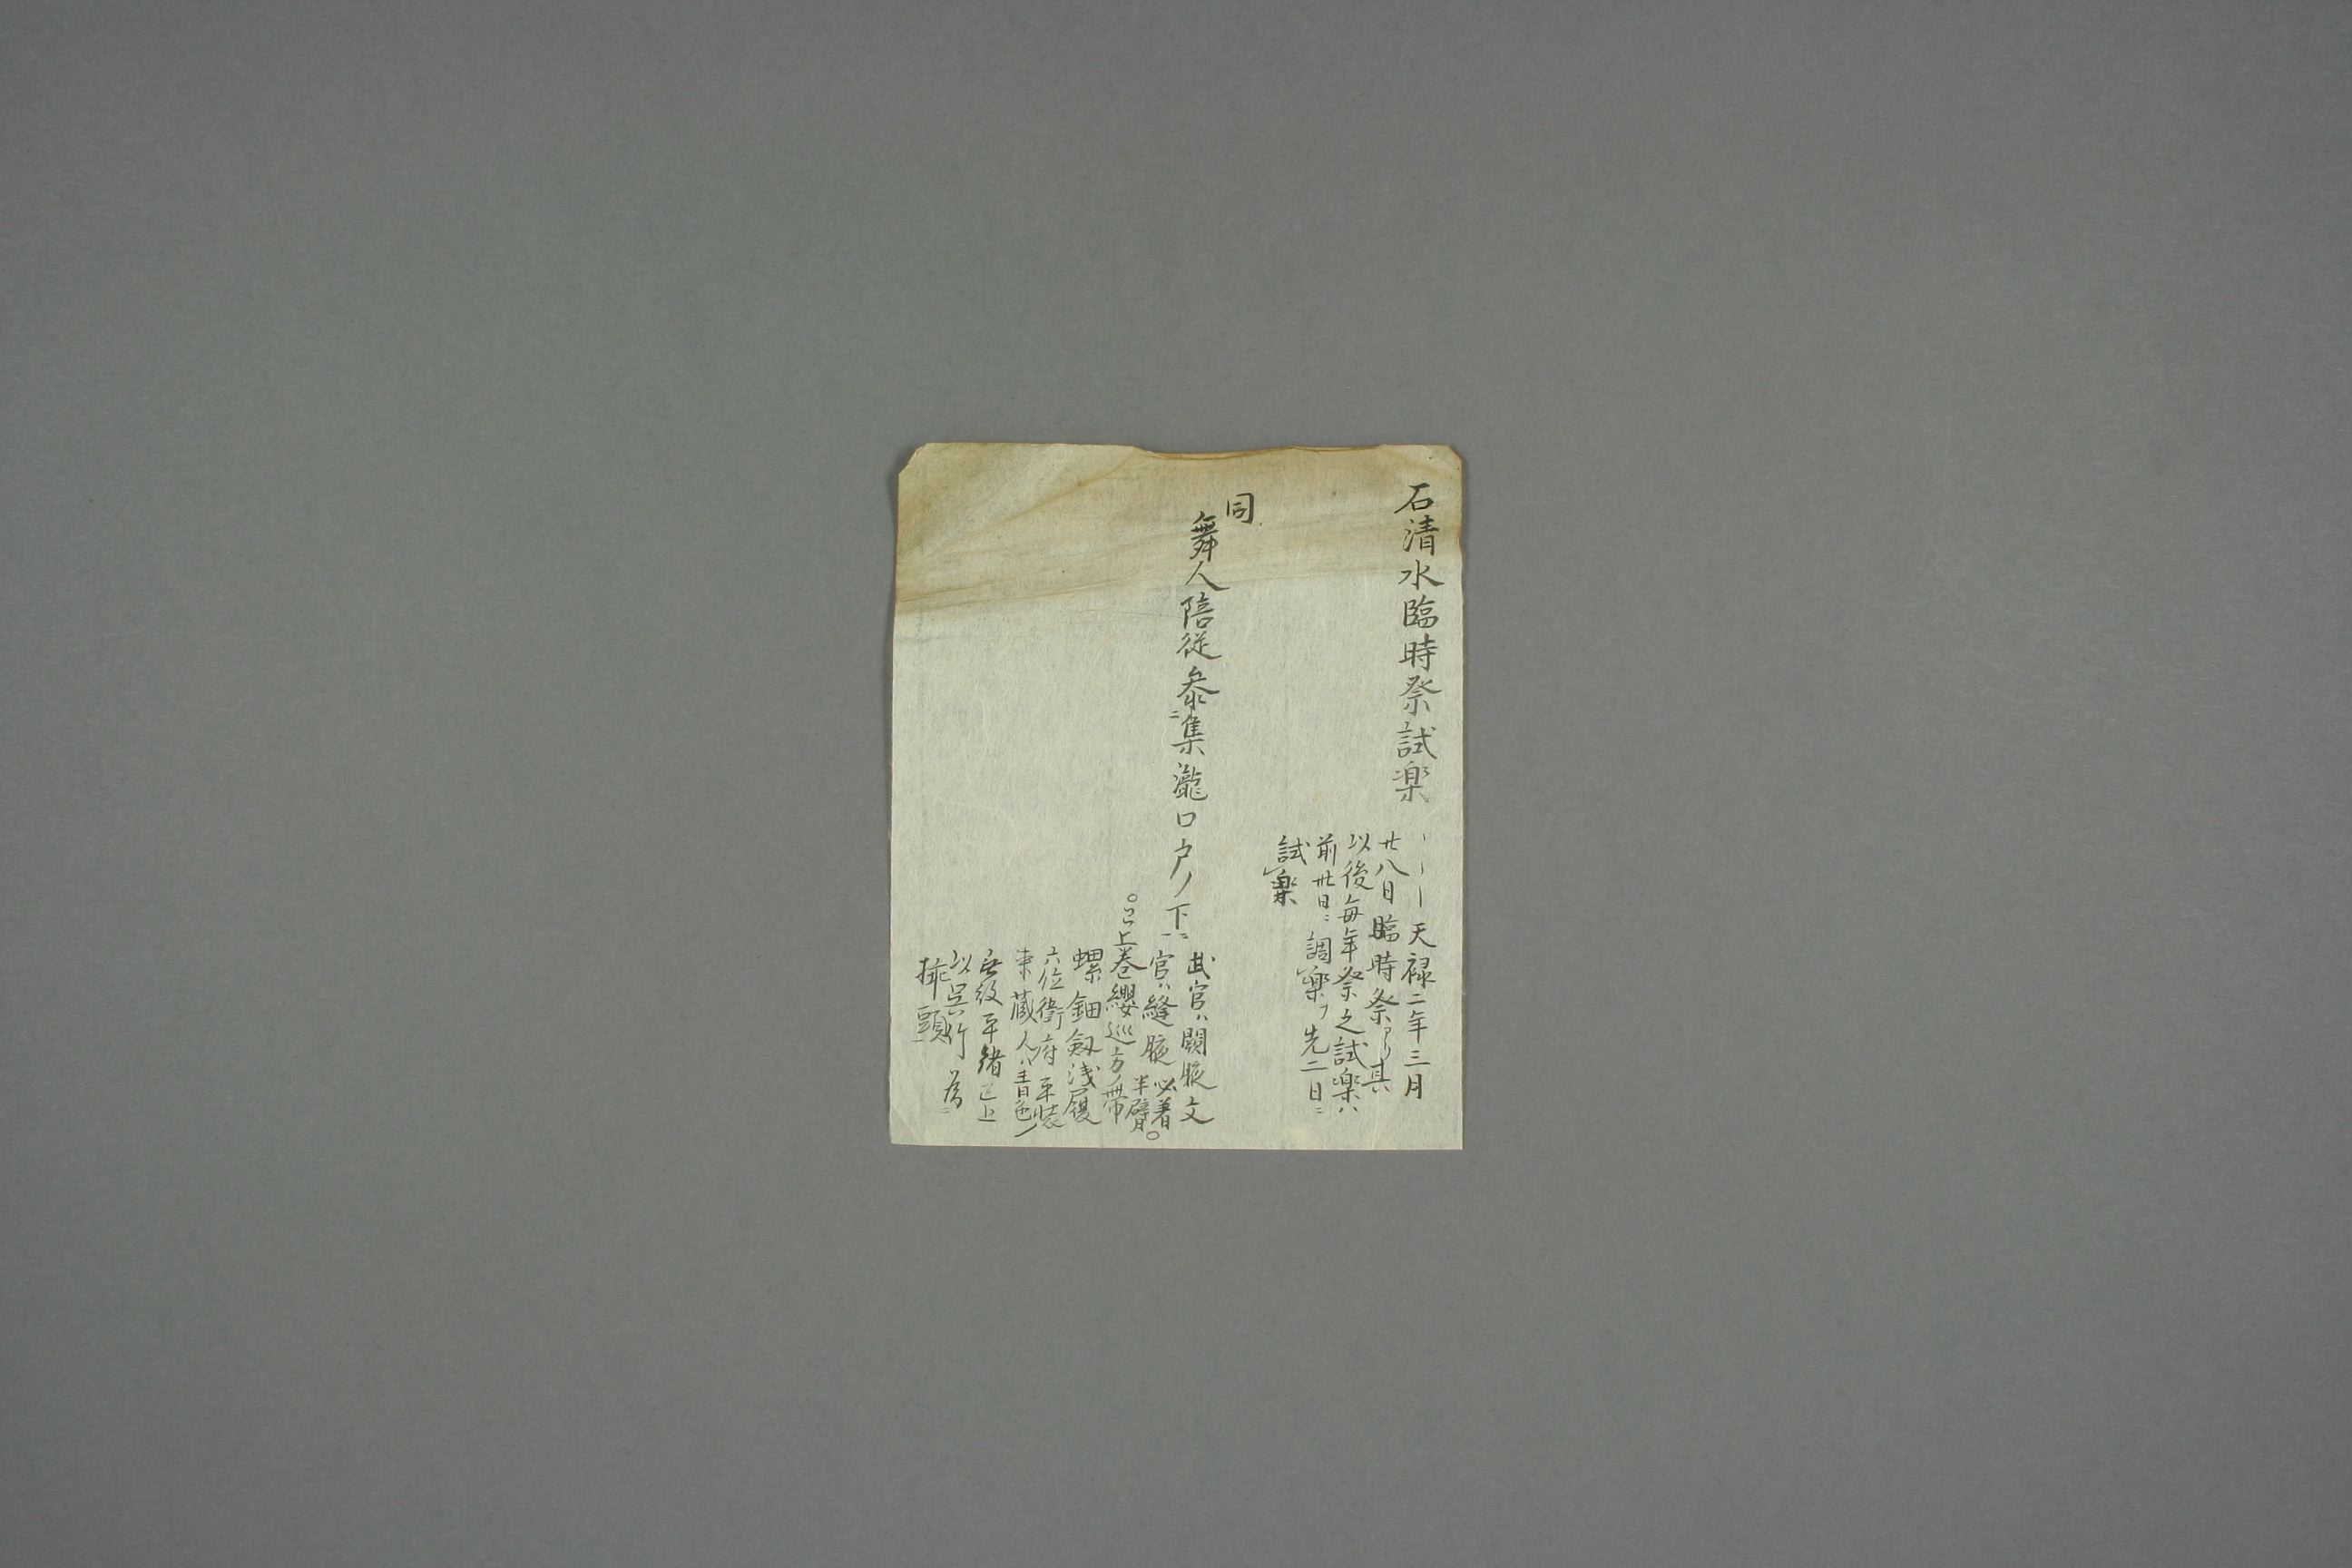 石清水臨時祭試楽
天禄二年三月
廿八日臨時祭アリ其
以後毎年祭之試楽ハ
前卅日ニ調楽ヲ先二日ニ
試楽
同
舞人陪従参ニ集瀧口戸ノ下ニ
武官ハ闕腋文
官ハ縫腋必着半臂
上巻纓巡方ノ帯
螺鈿剱浅履
六位衛府平装
束蔵人ハ青色ノ
無紋平緒已上
以呉竹為ニ
挿頭